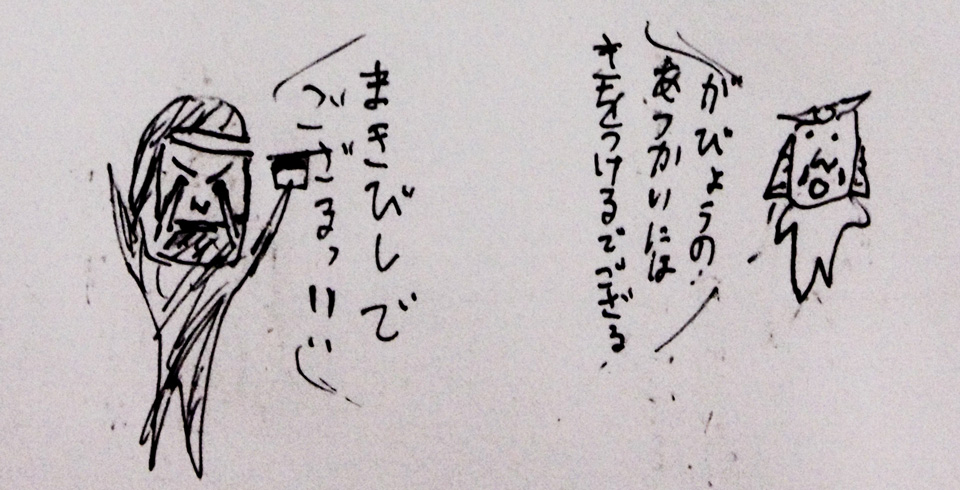 がびょうの
あつかいには
きをつけるでござる
まきびしで
ござるっ!!